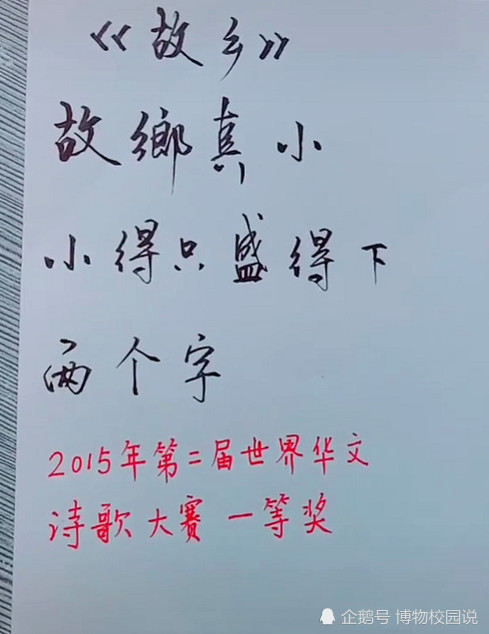 《故乡》
故鄉真小
小得只盛得下
两个字
2015年第二届世界华文
诗歌大赛一等奖
企鹅号 博物校园说